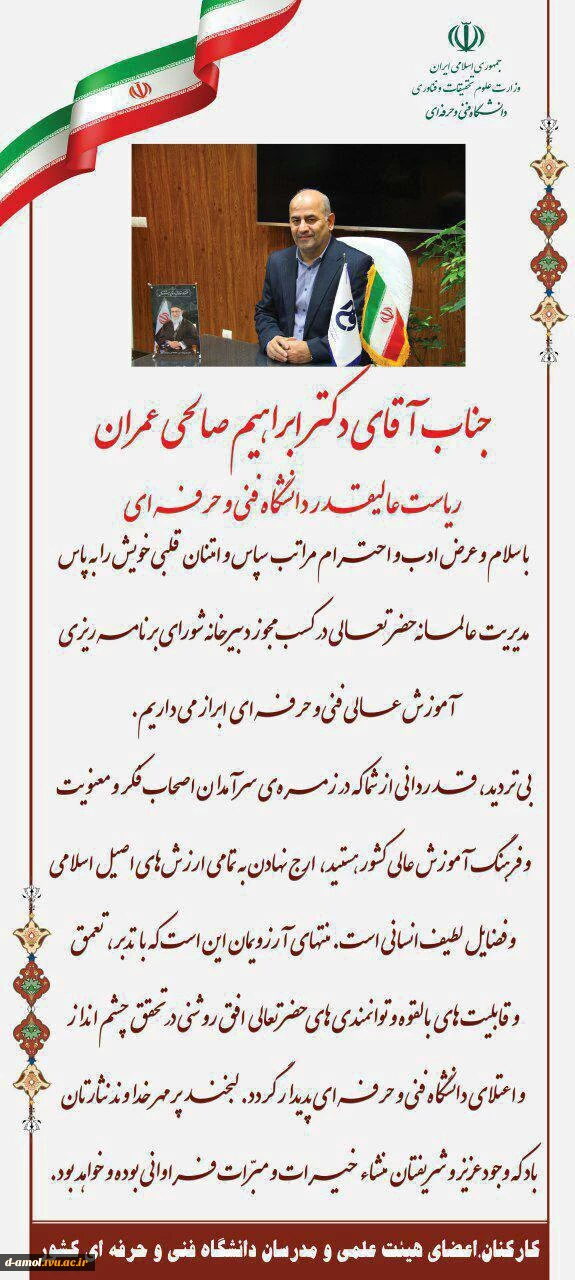 جمهوری اسلامی ایران
وزارت علوم تحقیقات و فناوری
دانشگاه فنی و حرفه ای
جناب آقای دکتر ابراهیم صالحی عمران
ریاست عالیقدر دانشگاه فنی و حرفه ای
با سلام و عرض ادب و احترام مراتب سپاس و امتنان قلبی خویش را به پاس
مدیریت عالمانه حضرتعالی در کسب مجوز دبیرخانه شورای برنامه ریزی
آموزش عالی فنی و حرفه ای ابراز می داریم.
بی تردید، قدردانی از شما که در زمره ی سرآمدان اصحاب فکر و معنویت
و فرهنگ آموزش عالی کشور هستید، ارج نهادن به تمامی ارزش های اصیل اسلامی
و فضایل لطیف انسانی است. منتهای آرزویمان این است که با تدبر، تعمق
و قابلیت های بالقوه و توانمندی های حضرتعالی افق روشنی در تحقق چشم انداز
و اعتلای دانشگاه فنی و حرفه ای پدیدار گردد. لبخند پر مهر خداوند نثارتان
باد که وجود عزیز و شریفتان منشاء خیرات و مبرّات فراوانی بوده و خواهد بود.
کارکنان،اعضای هیئت علمی و مدرسان دانشگاه فنی و حرفه ای کشور
d-amol.tvu.ac.ir